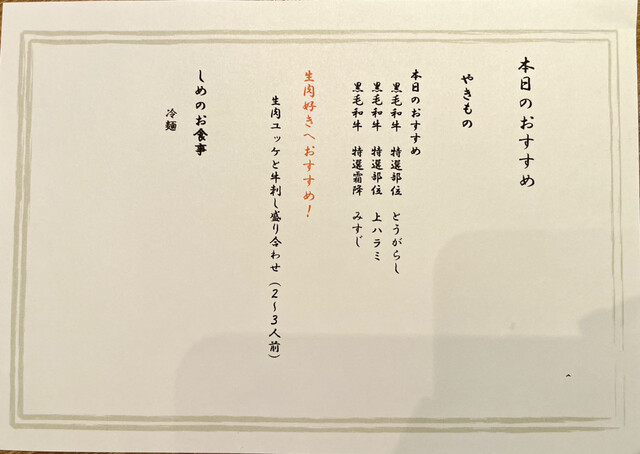 本日のおすすめ
やきもの
本日のおすすめ
黒毛和牛 特選部位 とうがらし
黒毛和牛 特選部位 上ハラミ
黒毛和牛 特選霜降 みすじ
生肉好きへおすすめ!
生肉ユッケと牛刺し盛り合わせ(2~3人前)
しめのお食事
冷麺